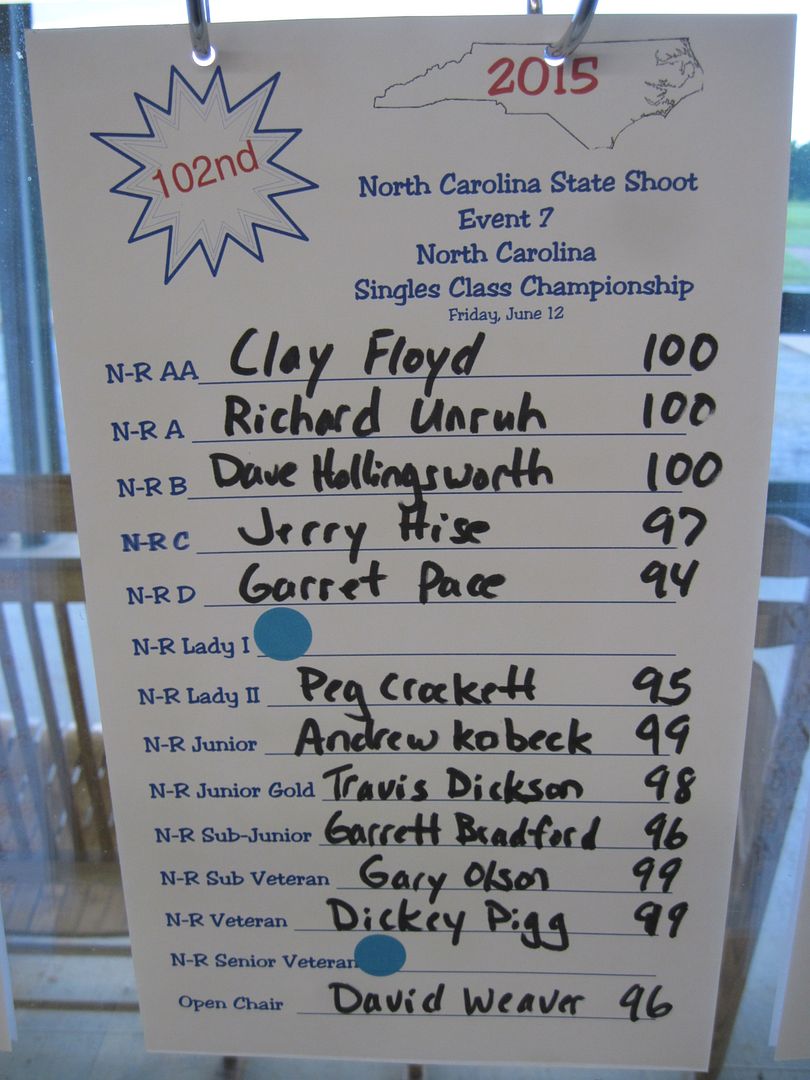 102nd
2015
North Carolina State Shoot
Event 7
North Carolina
Singles Class Championship
Friday, June 12
N-R AA Clay Floyd 100
N-R A Richard Unruh 100
N-R B Dave Hollingsworth 100
N-R C Jerry Hise 97
N-R D Garret Pace 94
N-R Lady I
N-R Lady II Peg Crockett 95
N-R Junior Andrew Kobeck 99
N-R Junior Gold Travis Dickson 98
N-R Sub-Junior Garrett Bradford 96
N-R Sub Veteran Gary Olson 99
N-R Veteran Dickey Pigg 99
N-R Senior Veteran
Open Chair David Weaver 96